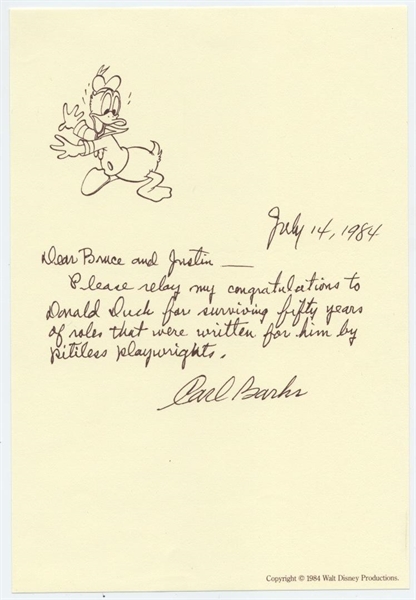 July 14, 1984
Dear Bruce and Justin —
Please relay my congratulations to
Donald Duck for surviving fifty years
of roles that were written for him by
pitiless playwrights.
Carl Barks
Copyright © 1984 Walt Disney Productions.